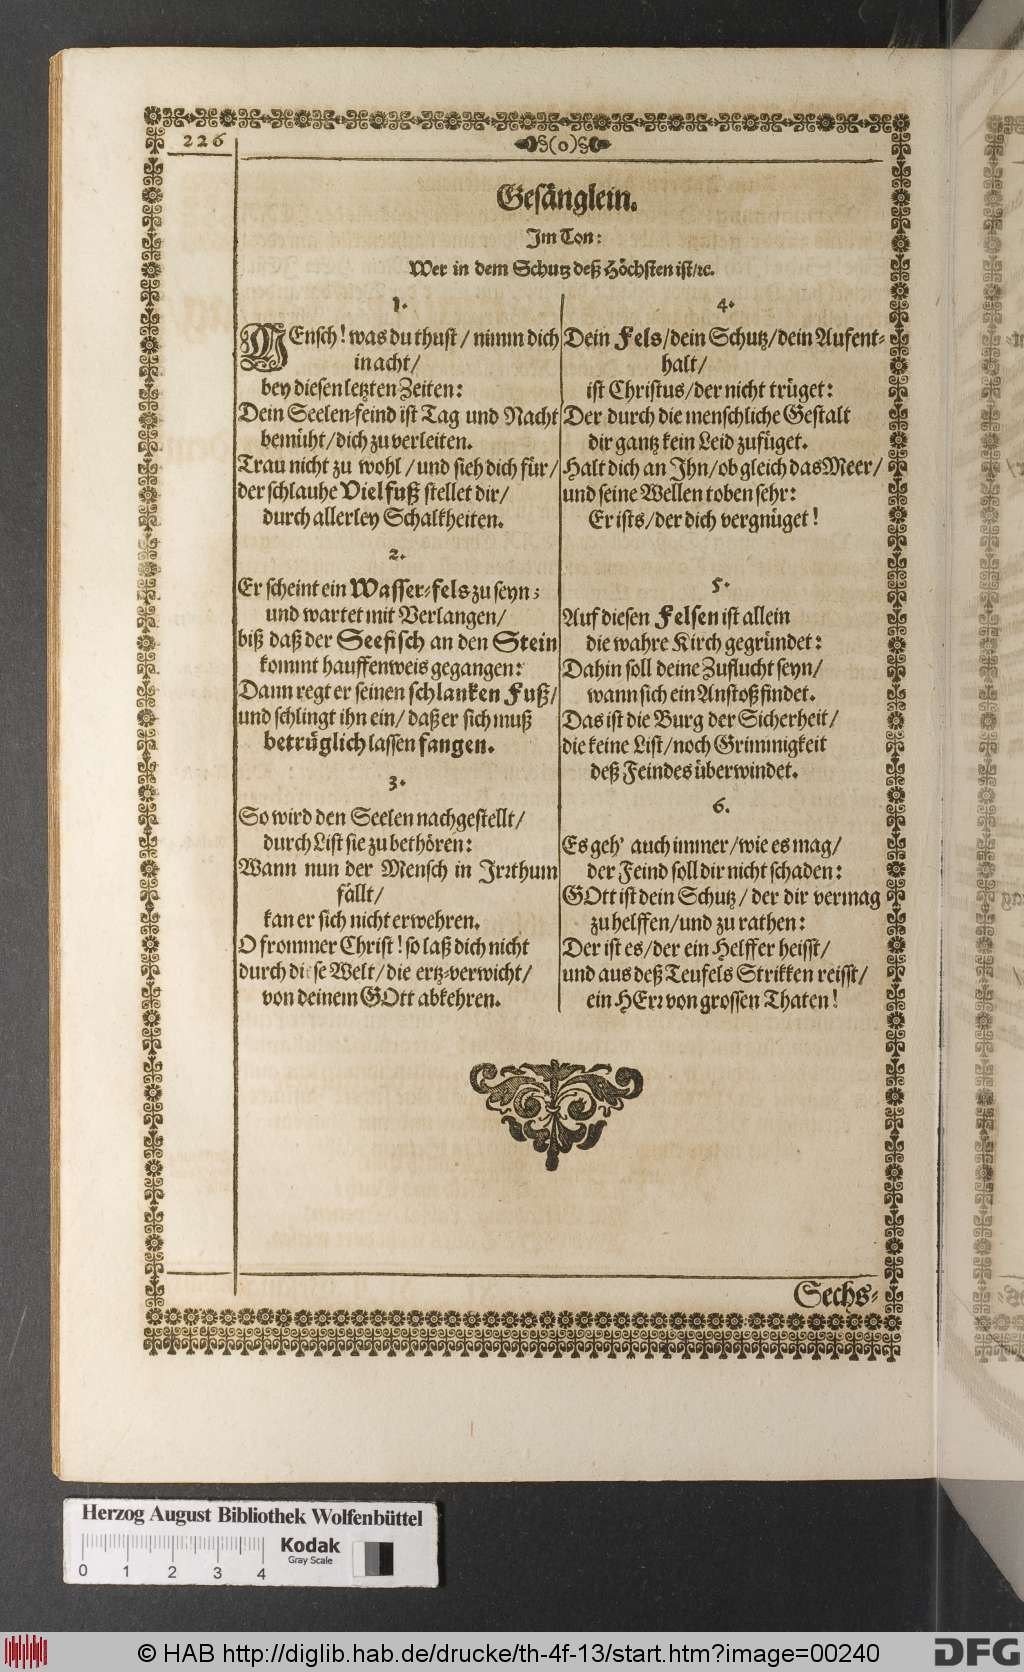 226
§(o)§
Gesänglein.
Im Ton:
Wer in dem Schutz deß Höchsten ist/ꝛc.
1.
MEnsch! was du thust / nimm dich
in acht/
bey diesen letzten Zeiten:
Dein Seelen-feind ist Tag und Nacht
bemüht/dich zu verleiten.
Trau nicht zu wohl / und sieh dich für/
der schlauhe Vielfuß stellet dir/
durch allerley Schalkheiten.
2.
Er scheint ein Wasser-fels zu seyn;
und wartet mit Verlangen/
biß daß der Seefisch an den Stein
kommt hauffenweis gegangen:
Dann regt er seinen schlanken Fuß/
und schlingt ihn ein/ daß er sich muß
betrüglich lassen fangen.
3.
So wird den Seelen nachgestellt/
durch List sie zu bethören:
Wann nun der Mensch in Irꝛthum
fällt/
kan er sich nicht erwehren.
O frommer Christ! so laß dich nicht
durch diese Welt/ die ertz-verwicht/
von deinem GOtt abkehren.
4.
Dein Fels/dein Schutz/dein Aufent-
halt/
ist Christus/der nicht trüget:
Der durch die menschliche Gestalt
dir gantz kein Leid zufüget.
Halt dich an Ihn/ob gleich das Meer/
und seine Wellen toben sehr:
Er ists/der dich vergnüget!
5.
Auf diesen Felsen ist allein
die wahre Kirch gegründet:
Dahin soll deine Zuflucht seyn/
wann sich ein Anstoß findet.
Das ist die Burg der Sicherheit/
die keine List/noch Grimmigkeit
deß Feindes überwindet.
6.
Es geh' auch immer/wie es mag/
der Feind soll dir nicht schaden:
GOtt ist dein Schutz/ der dir vermag
zu helffen/und zu rathen:
Der ist es/der ein Helffer heisst/
und aus deß Teufels Strikken reisst/
ein HErꝛ von grossen Thaten!
Sechs-
Herzog August Bibliothek Wolfenbüttel
Kodak
Gray Scale
0 1 2 3 4
© HAB http://diglib.hab.de/drucke/th-4f-13/start.htm?image=00240
DFG